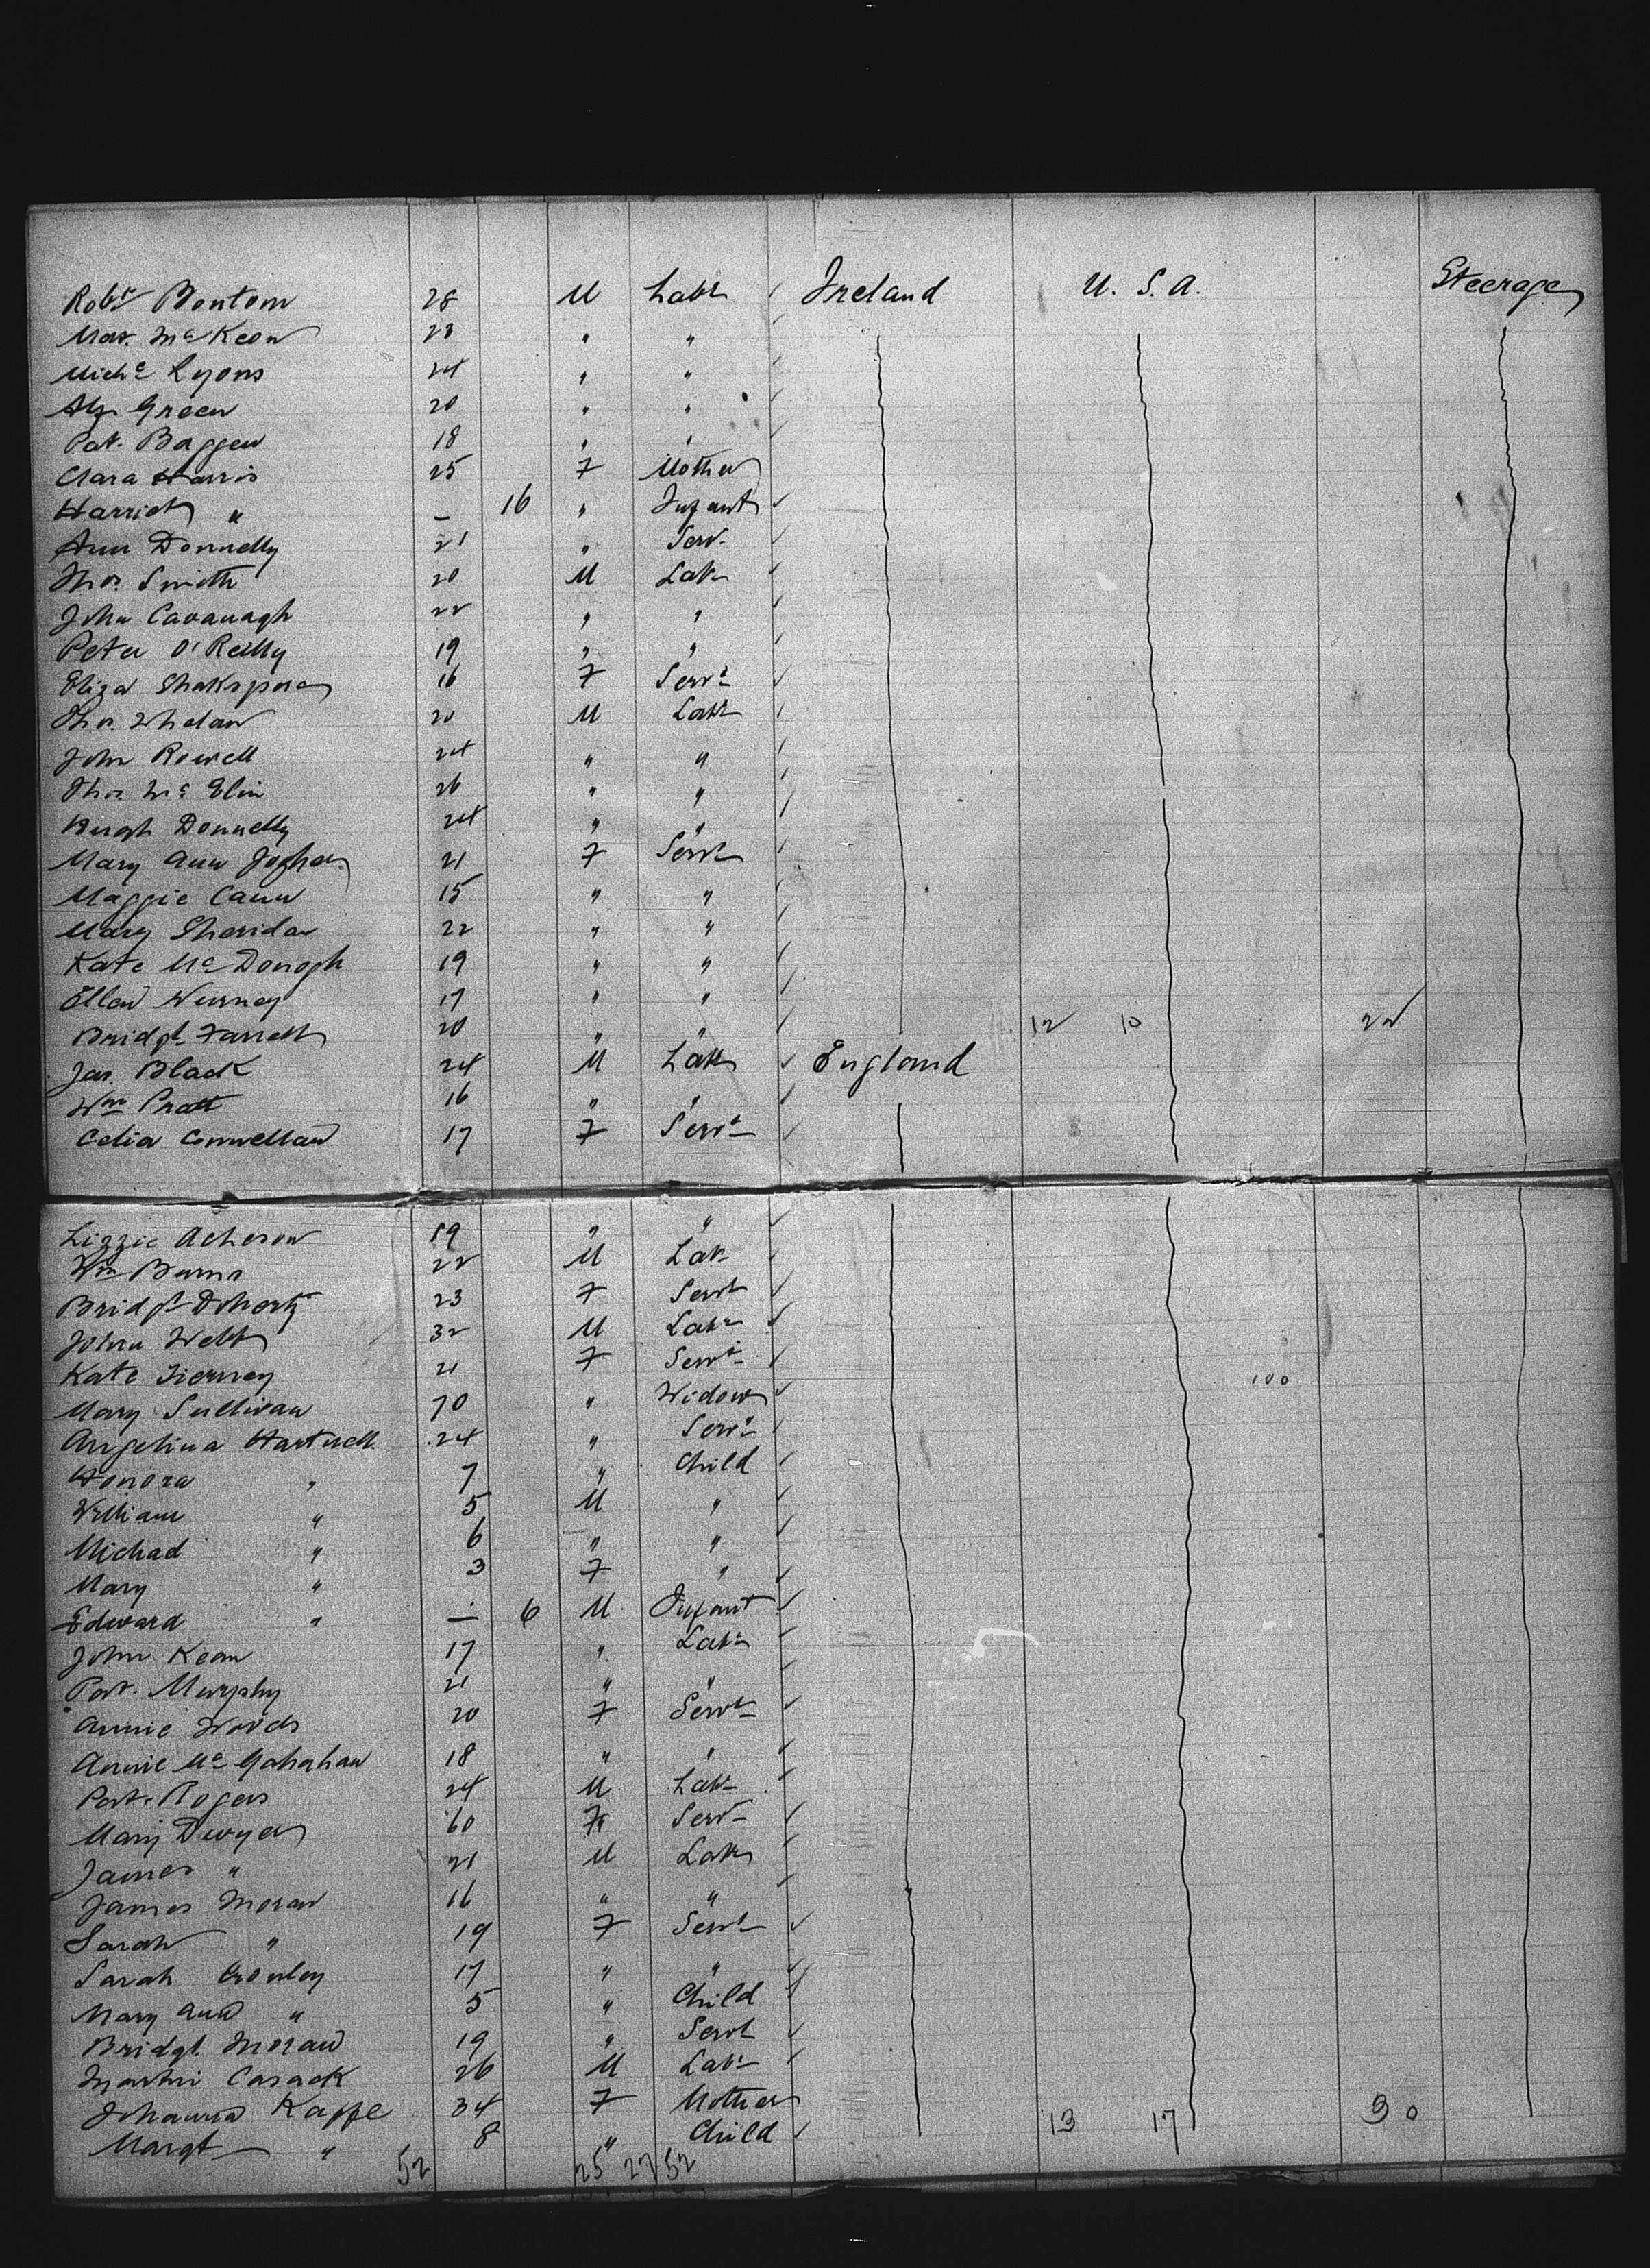 Robt Bentom 28 M Labr Ireland U. S. A. Steerage
Mar. McKeon 23 " "
Michl Lyons 24 " "
Green 20 " "
Pat. Baggen 18 " "
Clara Harris 25 F Mother
Harriet " – 16 " Infant
Ann Donnelly 21 " Serv.
Thos. Smith 20 M Labr
John Cavanagh 22 " "
Peter O'Reilly 19 " "
Eliza Shakspere 16 F Servt
Thos. Whelan 20 M Labr
John Rowell 24 " "
Thos. McElin 26 " "
Hugh Donnelly 24 " "
Mary Ann 21 F Servt
Maggie Cann 15 " "
Mary Sheridan 22 " "
Kate McDonogh 19 " "
Ellen 17 " "
Bridgt Farrell 20 " " 12 10 22
Jas. Black 24 M Labr England
Wm Pratt 16 " "
Celia Connellan 17 F Servt
Lizzie Acheson 19 " "
Wm Burns 22 M Labr
Bridgt Doherty 23 F Servt
John Webb 32 M Labr
Kate Tierney 21 F Servt
Mary Sullivan 70 " Widow 100
Angelina Hartnell 24 " Servt
Honora " 7 " Child
William " 5 M "
Michael " 6 " "
Mary " 3 F "
Edward " – 6 M Infant
John Kean 17 " Labr
Pat. Murphy 21 " "
Annie Woods 20 F Servt
Annie McGahahan 18 " "
Pat. Rogers 24 M Labr
Mary Dwyer 60 F Servt
James " 21 M Labr
James Moran 16 " "
Sarah " 19 F Servt
Sarah Cronley 17 " "
Mary Ann " 5 " Child
Bridgt. Moran 19 " Servt
Martin Casack 26 M Labr
Johanna Kappe 34 F Mother
Margt " 8 " Child 13 17 30
52 25 27 52